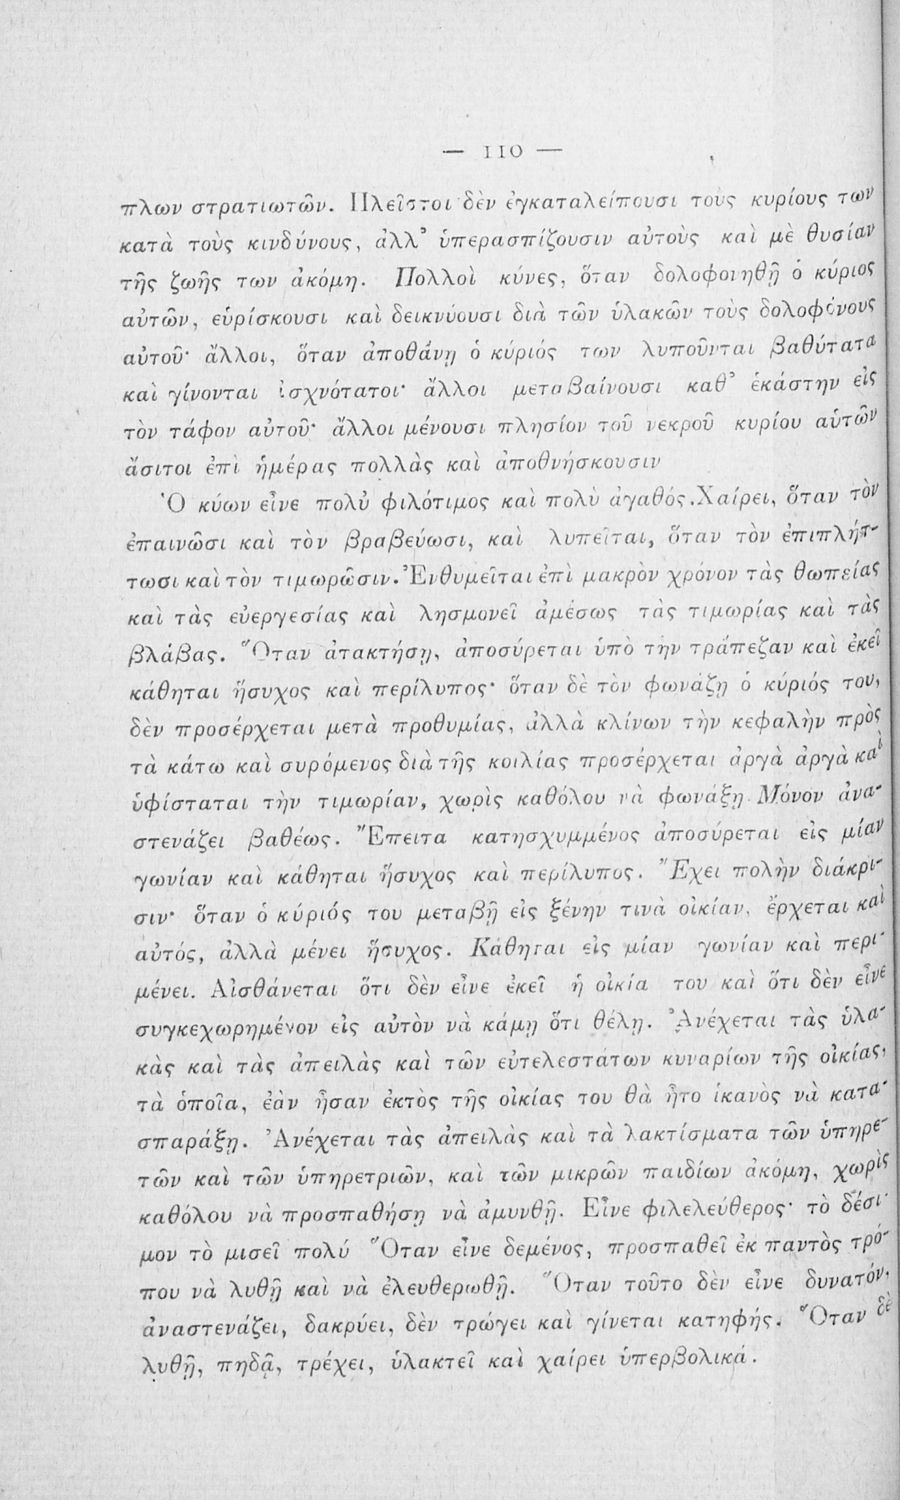 — 110 —
πλων στρατιωτῶν. Πλεῖστοι δὲν ἐγκαταλείπουσι τοὺς κυρίους των
κατὰ τοὺς κινδύνους, ἀλλ᾽ ὑπερασπίζουσιν αὐτοὺς καὶ μὲ θυσίαν
τῆς ζωῆς των ἀκόμη. Πολλοὶ κύνες, ὅταν δολοφονηθῇ ὁ κύριος
αὐτῶν, εὑρίσκουσι καὶ δεικνύουσι διὰ τῶν ὑλακῶν τοὺς δολοφόνους
αὐτοῦ· ἄλλοι, ὅταν ἀποθάνῃ ὁ κύριός των λυποῦνται βαθύτατα
καὶ γίνονται ἰσχνότατοι· ἄλλοι μεταβαίνουσι καθ᾽ ἑκάστην εἰς
τὸν τάφον αὐτοῦ· ἄλλοι μένουσι πλησίον τοῦ νεκροῦ κυρίου αὑτῶν
ἄσιτοι ἐπὶ ἡμέρας πολλὰς καὶ ἀποθνήσκουσιν
Ὁ κύων εἶνε πολὺ φιλότιμος καὶ πολὺ ἀγαθός. Χαίρει, ὅταν τὸν
ἐπαινῶσι καὶ τὸν βραβεύωσι, καὶ λυπεῖται, ὅταν τὸν ἐπιπλήτ-
τωσι καὶ τὸν τιμωρῶσιν. Ἐνθυμεῖται ἐπὶ μακρὸν χρόνον τὰς θωπείας
καὶ τὰς εὐεργεσίας καὶ λησμονεῖ ἀμέσως τὰς τιμωρίας καὶ τὰς
βλάβας. Ὅταν ἀτακτήσῃ, ἀποσύρεται ὑπὸ τὴν τράπεζαν καὶ ἐκεῖ
κάθηται ἥσυχος καὶ περίλυπος· ὅταν δὲ τὸν φωνάζῃ ὁ κύριός του,
δὲν προσέρχεται μετὰ προθυμίας, ἀλλὰ κλίνων τὴν κεφαλὴν πρὸς
τὰ κάτω καὶ συρόμενος διὰ τῆς κοιλίας προσέρχεται ἀργὰ ἀργὰ καὶ
ὑφίσταται τὴν τιμωρίαν, χωρὶς καθόλου νὰ φωνάξῃ. Μόνον ἀνα-
στενάζει βαθέως. Ἔπειτα κατησχυμμένος ἀποσύρεται εἰς μίαν
γωνίαν καὶ κάθηται ἥσυχος καὶ περίλυπος. Ἔχει πολὴν διάκρι-
σιν· ὅταν ὁ κύριός του μεταβῇ εἰς ξένην τινὰ οἰκίαν, ἔρχεται καὶ
αὐτός, ἀλλὰ μένει ἥσυχος. Κάθηται εἰς μίαν γωνίαν καὶ περι-
μένει. Αἰσθάνεται ὅτι δὲν εἶνε ἐκεῖ ἡ οἰκία του καὶ ὅτι δὲν εἶνε
συγκεχωρημένον εἰς αὐτὸν νὰ κάμῃ ὅτι θέλῃ. Ἀνέχεται τὰς ὑλα-
κὰς καὶ τὰς ἀπειλὰς καὶ τῶν εὐτελεστάτων κυναρίων τῆς οἰκίας,
τὰ ὁποῖα, ἐὰν ἦσαν ἐκτὸς τῆς οἰκίας του θὰ ἦτο ἱκανὸς νὰ κατα-
σπαράξῃ. Ἀνέχεται τὰς ἀπειλὰς καὶ τὰ λακτίσματα τῶν ὑπηρε-
τῶν καὶ τῶν ὑπηρετριῶν, καὶ τῶν μικρῶν παιδίων ἀκόμη, χωρὶς
καθόλου νὰ προσπαθήσῃ νὰ ἀμυνθῇ. Εἶνε φιλελεύθερος· τὸ δέσι-
μον τὸ μισεῖ πολύ Ὅταν εἶνε δεμένος, προσπαθεῖ ἐκ παντὸς τρό-
που νὰ λυθῇ καὶ νὰ ἐλευθερωθῇ. Ὅταν τοῦτο δὲν εἶνε δυνατόν,
ἀναστενάζει, δακρύει, δὲν τρώγει καὶ γίνεται κατηφής. Ὅταν δὲ
λυθῇ, πηδᾷ, τρέχει, ὑλακτεῖ καὶ χαίρει ὑπερβολικά.